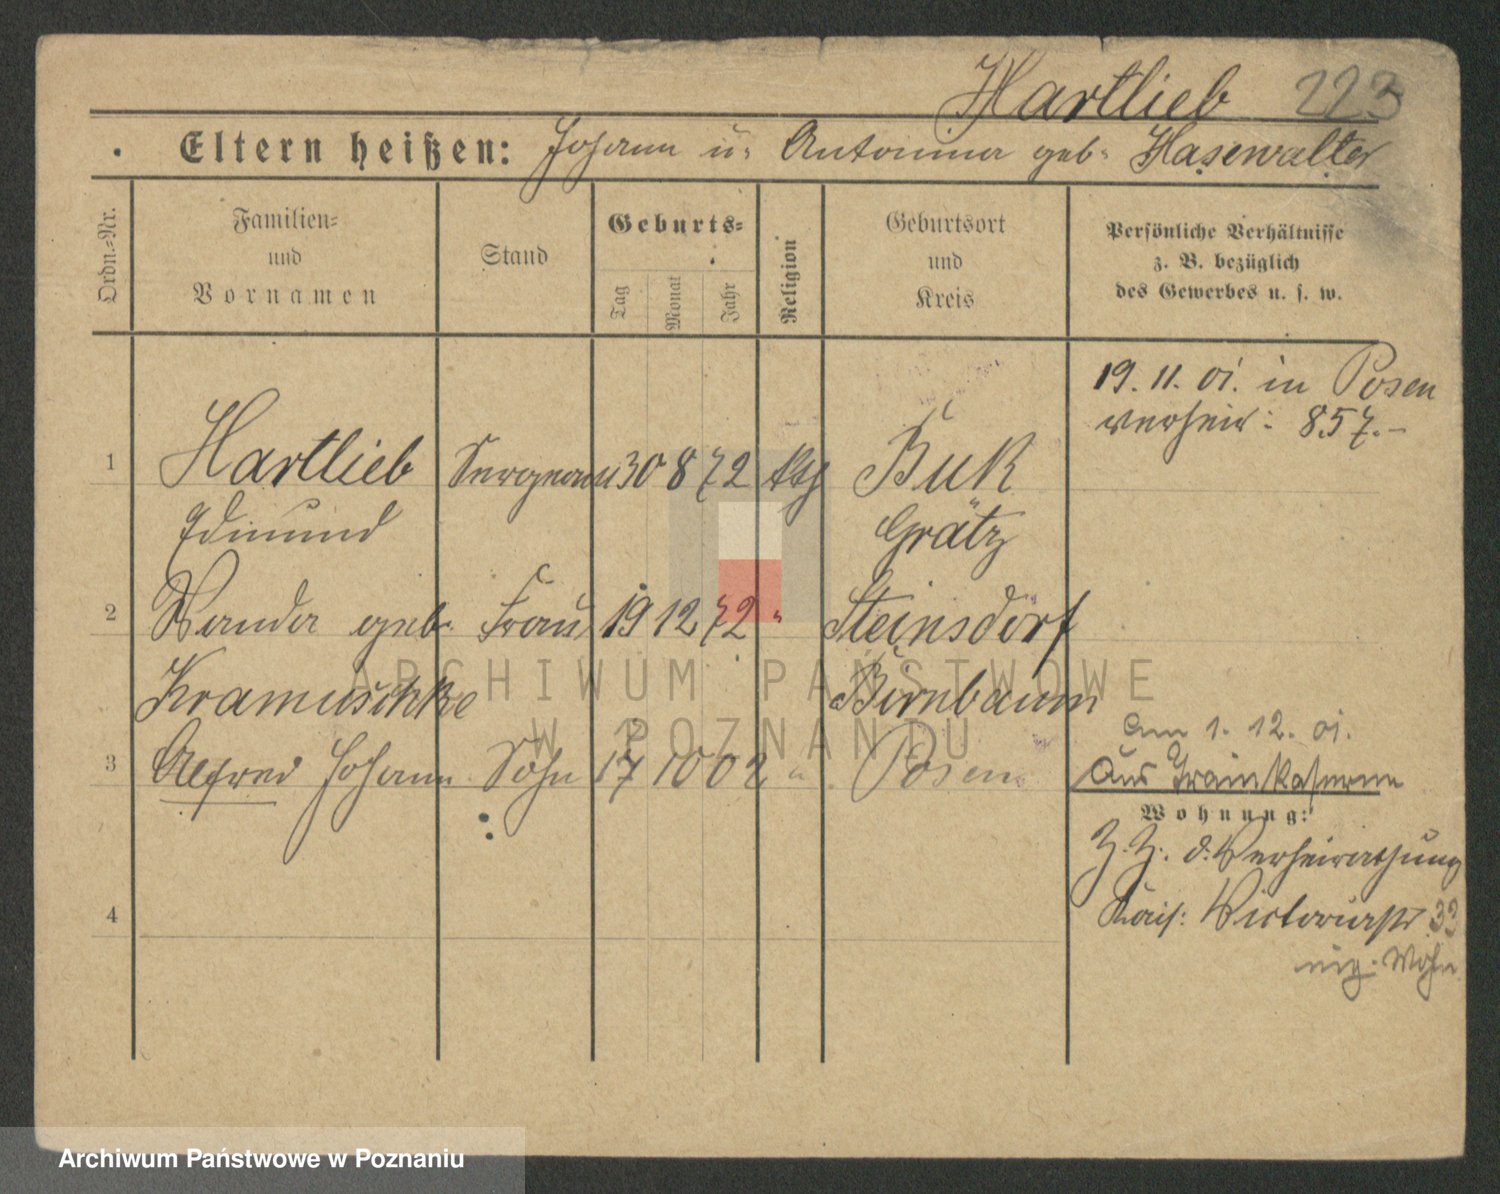 Hartlieb 223
Eltern heißen: Johann u. Antonina geb. Hasewalter
Ordn.=Nr.
Familien=
und
Vornamen
Stand
Geburts=
Tag
Monat
Jahr
Religion
Geburtsort
und
Kreis
Persönliche Verhältnisse
z. B. bezüglich
des Gewerbes u. s. w.
19. 11. 01. in Posen
verheir: 857.-
1 Hartlieb Sergeant 30 8 72 kth Buk
Edmund Grätz
2 Wanda geb. Frau 19 12 72 " Steinsdorf
Kramuschke Birnbaum
3 Alfred Johann Sohn 17 10 02 " Posen
Am 1. 12. 01.
Aus Trainkaserne
Wohnung:
Z. Z. d. Verheirathung
4
Kais: Victoriastr 33
eig. Wohn
ARCHIWUM PAŃSTWOWE
W POZNANIU
Archiwum Państwowe w Poznaniu